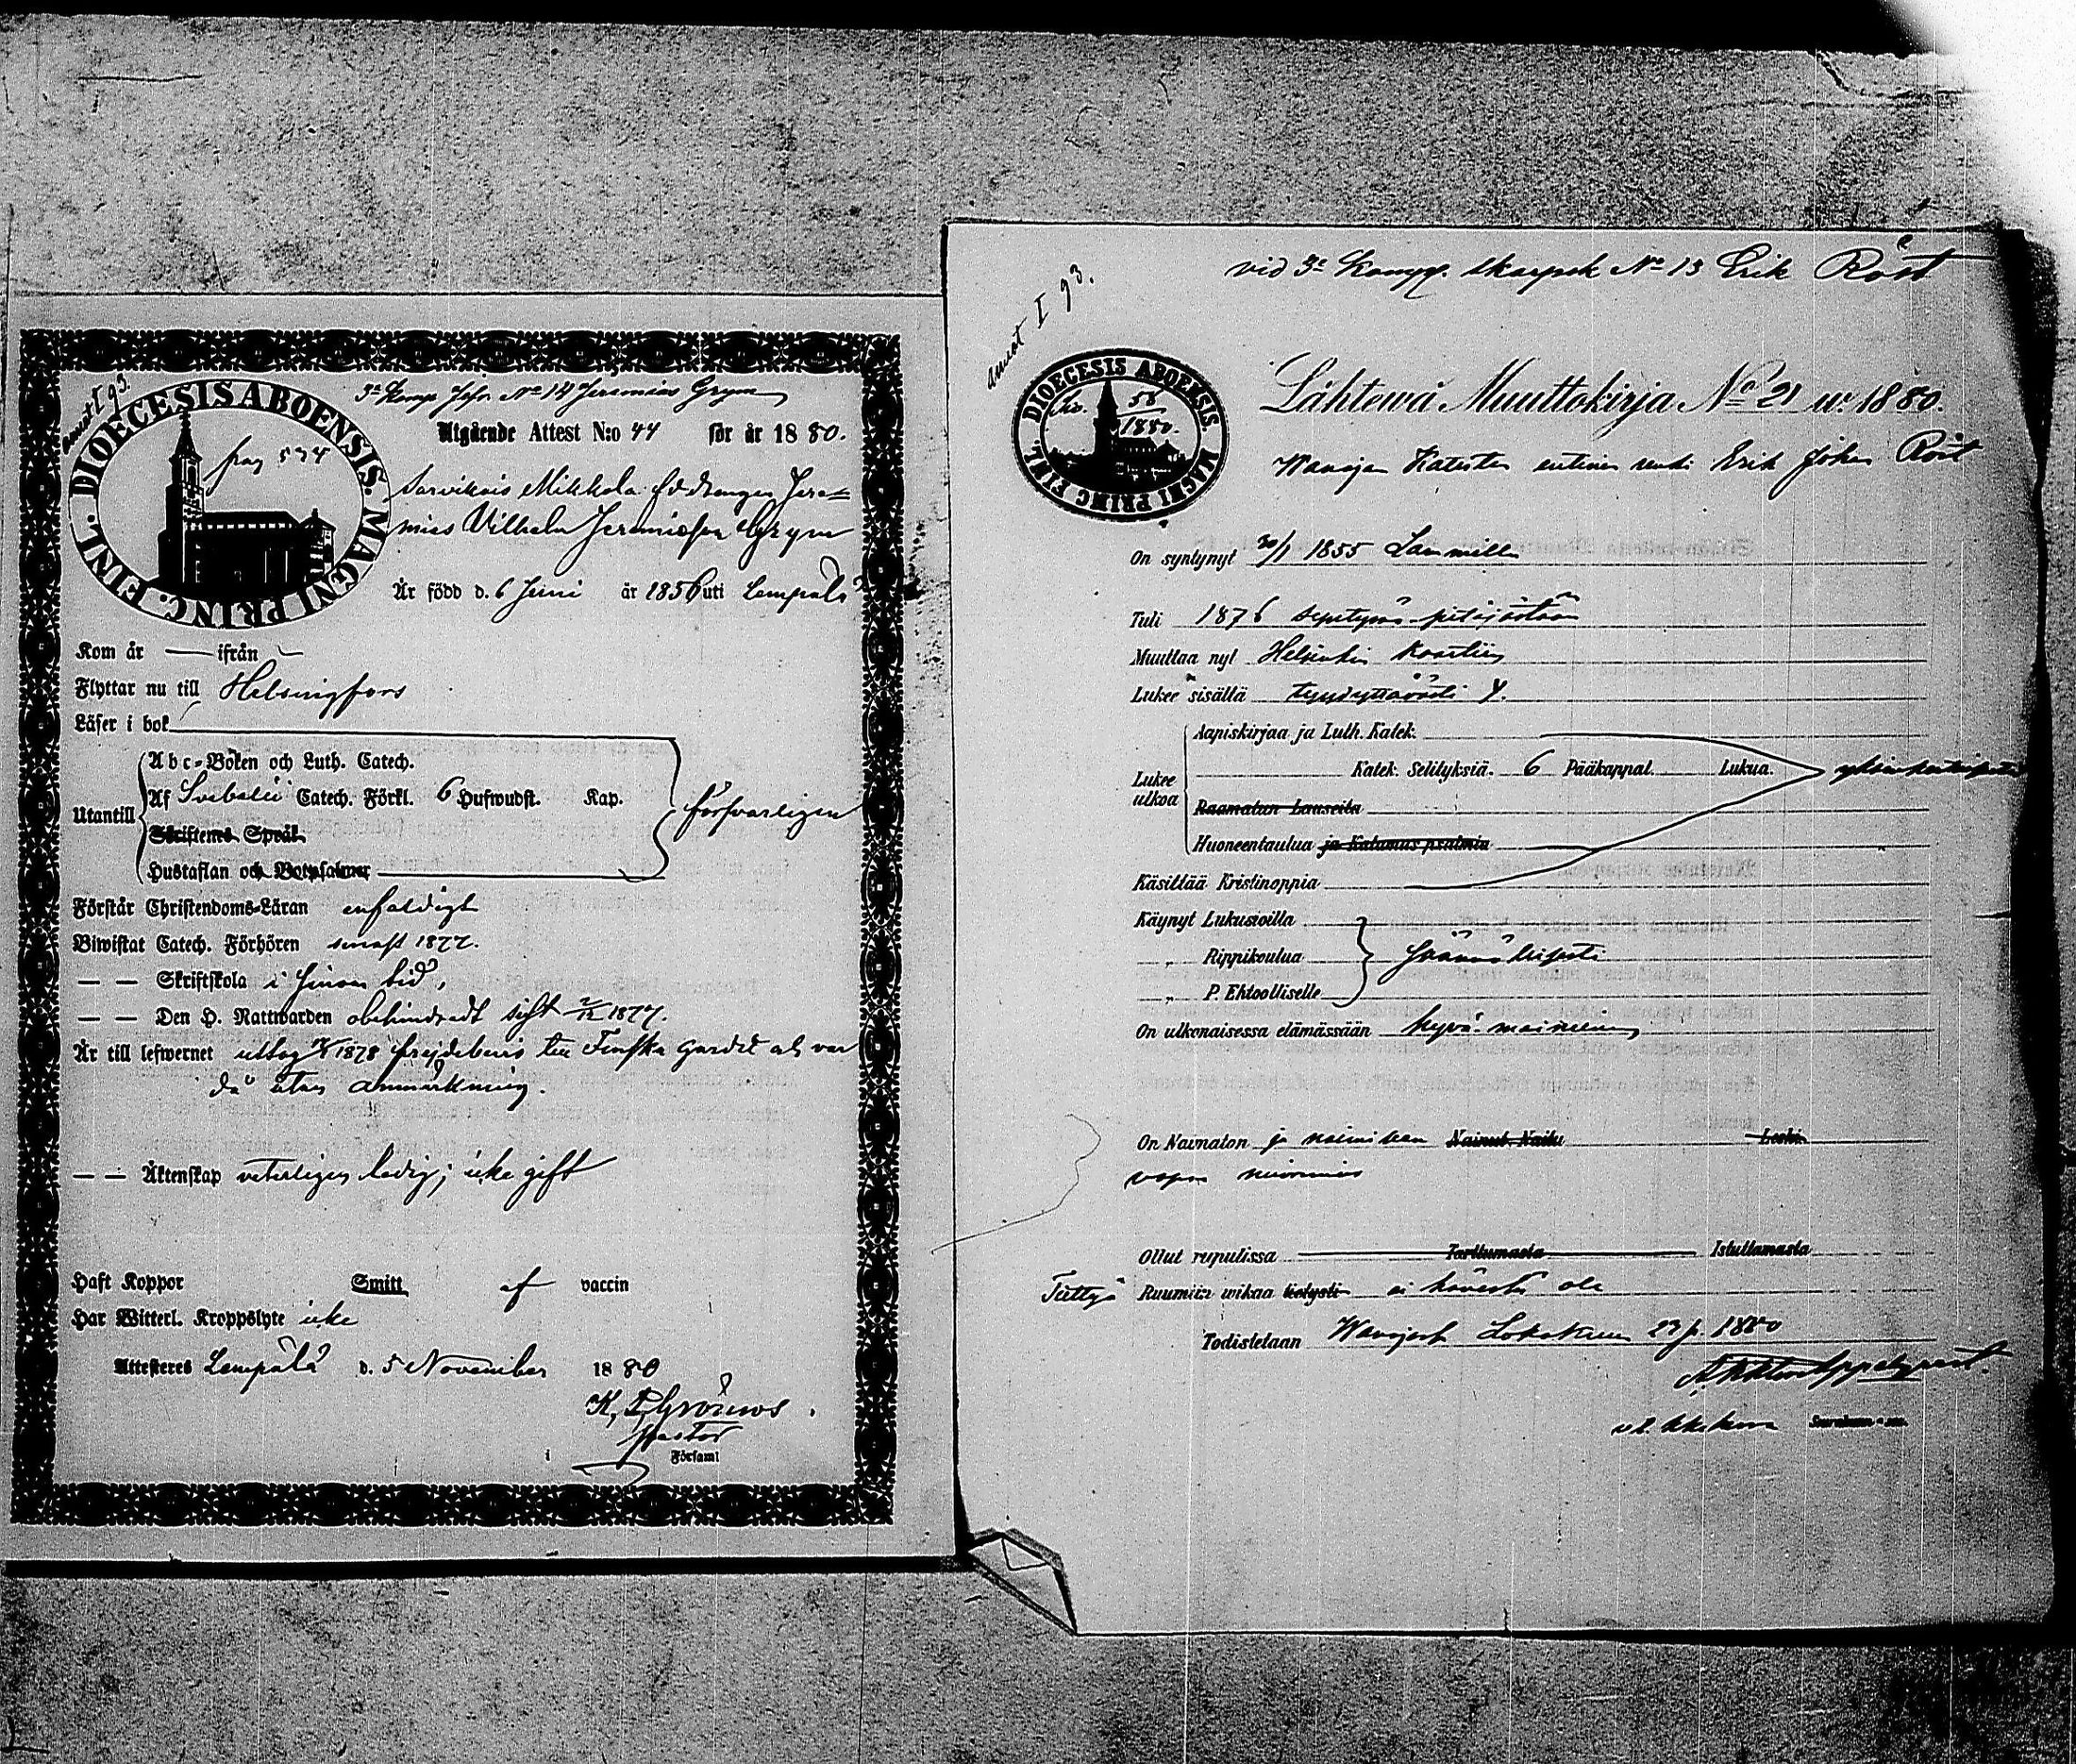 annot I 93.
DIOECESIS ABOENSIS. MAGNI PRINC. FINL.
pag 534
3e Komp Jefr. No 14 Jeremias Grym
Utgående Attest N:o 44 för år 1880.
Sarvikais Mikkola fddrengen Jere=
mias Vilhelm Jeremiasson Grym
Är född d. 6 Juni år 1856 uti Lempälä
Kom år — ifrån —
Flyttar nu till Helsingfors
Läser i bok
Abc-Boken och Luth. Catech.
Utantill Af Svebelii Catech. Förkl. 6 Hufwudst. Kap. försvarligen
Skriftenes Språk
Hustaflan och Botpsalmer
Förstår Christendoms-Läran enfaldigt
Biwistat Catech. Förhören senast 1877.
— — Skriftskola i sinom tid,
— — Den H. Nattwarden obehindradt sist 2/12 1877.
Är till lefwernet uttog 1878 frejdebevis till Finska Gardet och var
då utan anmärkning.
— — Äktenskap veterligen ledig; icke gift
Haft Koppor Smitt af vaccin
Har Witterl. Kroppslyte icke
Attesteres Lempälä d. 5 November 1880
K. Grönroos.
Pastor
i Församl
vid 3e Komp. skarpsk No 13 Erik Röst
annot I 93.
DIOECESIS ABOENSIS. MAGNI PRINC FINL.
Siv. 58
1880.
Lähtewä Muuttokirja No 21 w. 1880.
Wanajan Katisten entinen renki Erik Johan Röst
On syntynyt 30/1 1855 Lammilla
Tuli 1876 syntymä-pitäjästään
Muuttaa nyt Helsinkin Kaartiin
Lukee sisältä tyydyttävästi Y.
Aapiskirjaa ja Luth. Katek.
Lukee ulkoa Katek. Selityksiä. 6 Pääkappal. Lukua. yksinkertaisesti
Raamatun Lauseita
Huoneentaulua ja Katumus psalmia
Käsittää Kristinoppia
Käynyt Lukusioilla
„ Rippikoulua säännöllisesti
„ P. Ehtoolliselle
On ulkonaisessa elämässään hyvä-maineinen
On Naimaton ja naimiseen Nainut Naitu Leski
vapa
Ollut rupulissa Tarttumasta Istuttamasta
Tiettyä Ruumiin wikaa tietysti ei hänestä ole
Todistetaan Wanajasta Lokakuun 23 p. 1880